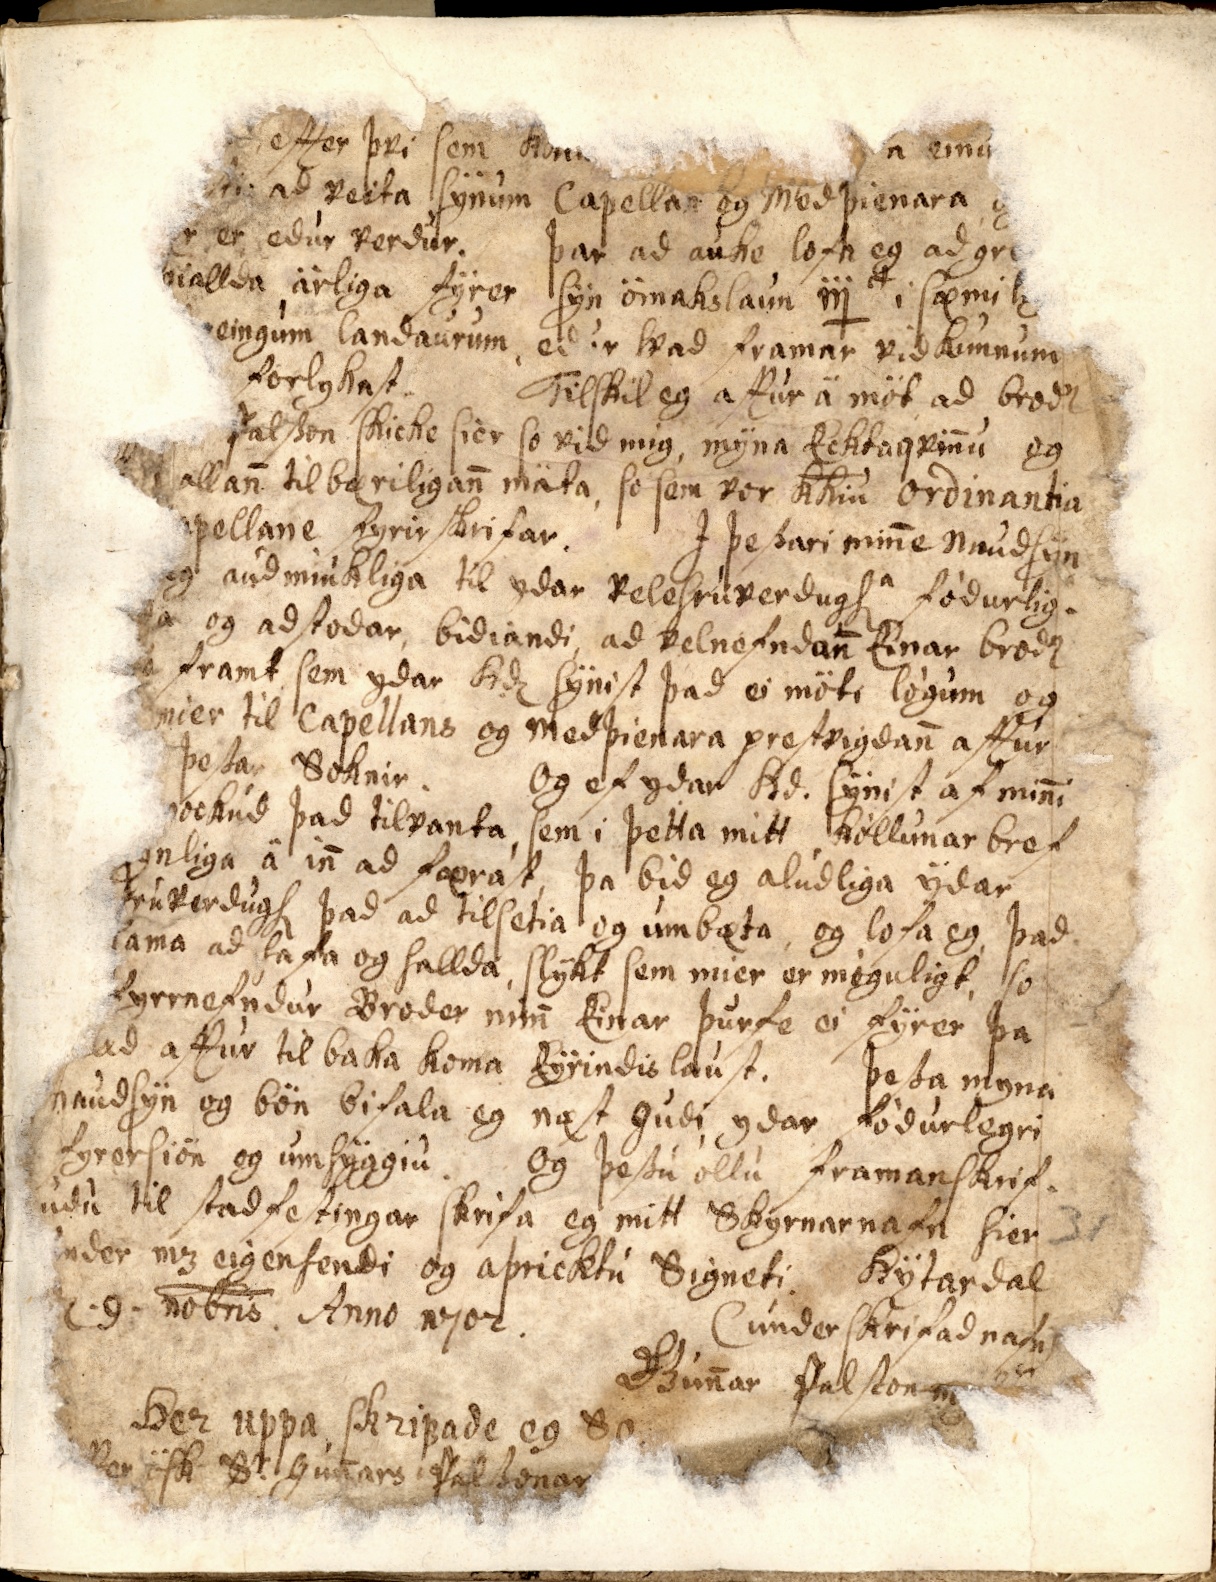 effter þvi sem
ad veita synum Capellan og Medþienara
er edur verdur. Þar ad auke lofa eg ad
hiallda årliga fyrer syn ömakslaun iij ct i sæmil
eingum landaurum, edur hvad framar vid kunnum
forlykast. Tilskil eg afftur ä möt ad brodr
Palsson skicke sier so vid mig, myna Eckta qvinnu og
allann tilbæriligann mäta, so sem vor kkiu Ordinantia
apellane fyrirskrifar. I þessari minne naudsyn
eg audmiukliga til ydar velehruverdughta fødurlig-
a og adstodar, bidiandi, ad velnefndann Einar brodr
framt sem ydar hdr synist þad ei möti løgum og
mier til Capellans og Medþienara prestvigdann afftur
þessar Soknir. Og ef ydar hd. synist af minni
nockud þad tilvanta, sem i þetta mitt køllunar bref
ynliga ä inn ad færast, þa bid eg aludliga ydar
ruverdugh þad ad tilsetia og umbæta, og lofa eg, þad
sama ad hafa og hallda, slykt sem mier er møguligt, so
fyrrnefndur Broder minn Einar þurfe ei fyrer þa
ad afftur til baka koma Eyrindislaust. Þessa myna
naudsyn og bön bifala eg næst Gudi ydar fødurlegri
fyrersiön og umhyggiu. Og þessu øllu framanskrif-
udu til stadfestingar skrifa eg mitt Skyrnarnafn hier
under mz eigenhendi og apricktu Signeti. Hytardal
d. 9. nobris. Anno 1702.
(underskrifad nafn)
Gunnar Palsson
Her uppa skripade eg So
Ver ösk Sr Gunnars Palssonar